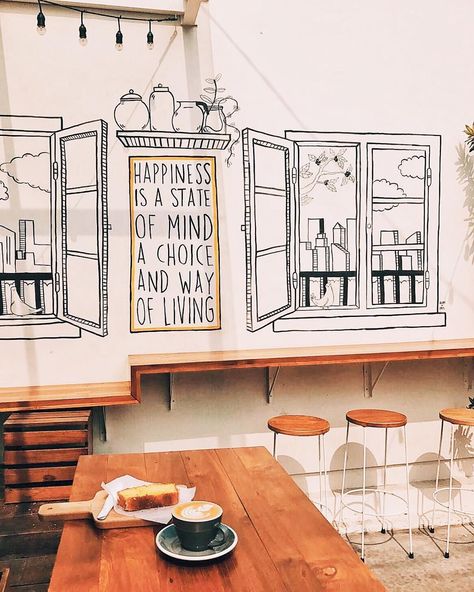 HAPPINESS
IS A STATE
OF MIND
A CHOICE
AND WAY
OF LIVING